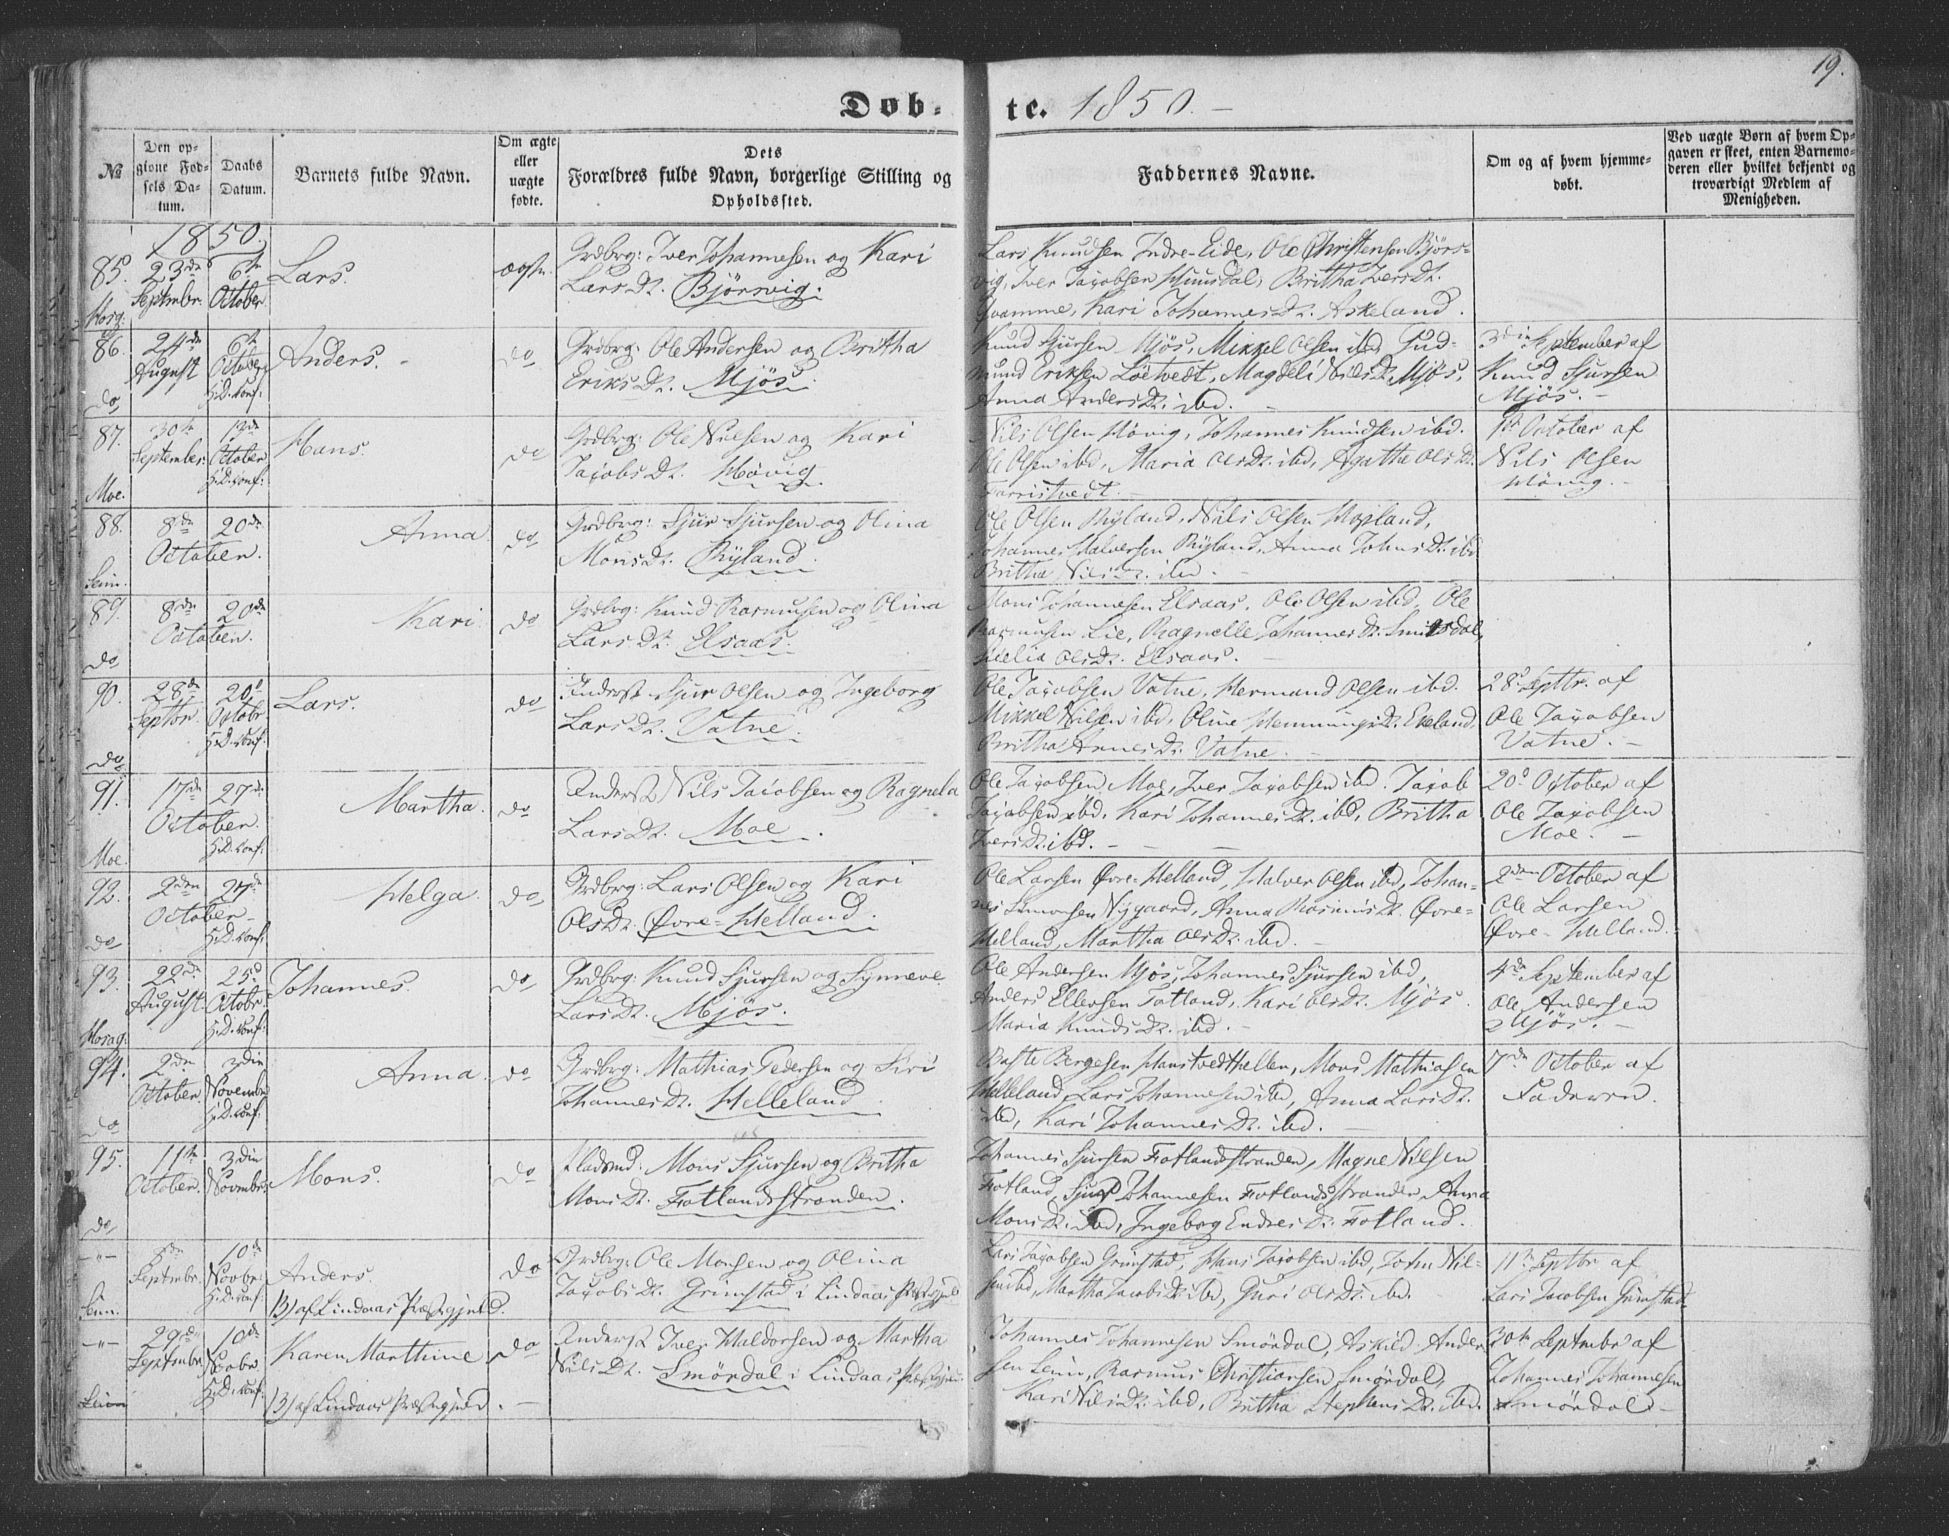 19.
Døb-
te. 1850.
№
Den op-
givne Fød-
sels Da-
tum.
Daabs
Datum.
Barnets fulde Navn.
Om ægte
eller
uægte
fødte.
Dets
Forældres fulde Navn, borgerlige Stilling og
Opholdssted.
Faddernes Navne.
Om og af hvem hjemme-
døbt.
Ved uægte Børn af hvem Op-
gaven er skeet, enten Barnemo-
deren eller hvilket bekjendt og
troværdigt Medlem af
Menigheden.
1850.
85.
23de
Septembr.
6te
October
Lars.
ægte.
Grdbrg: Iver Johannesen og Kari
Larsdt. Bjørsvig.
Lars Knudsen Indre-Eide, Ole Christensen Bjørs-
vig, Iver Jacobsen Hunsdal, Britha Iversdt.
Qvamme, Kari Johannesdt. Askeland.
86.
do
24de
August
6te
October
H.D. conf:
Anders.
do
Grdbrg: Ole Andersen og Britha
Eriksdt. Mjøs.
Knud Sjursen Mjøs, Mikkel Olsen ibd, Gud-
mund Eriksen Løtvedt, Magdeli Nilsdt. Mjøs,
Anna Andersdt. ibd.
3die September af
Knud Sjursen
Mjøs.
87.
Moe.
30te
September.
13de
October
H.D. conf:
Hans.
do
Grdbrg: Ole Nilsen og Kari
Jacobsdt. Høvig.
Nils Olsen Høvig, Johannes Knudsen ibd.
Ole Olsen ibd, Maria Olsdt. ibd, Agatha Olsdt.
Farristvedt.
1ste October af
Nils Olsen
Høvig.
88.
Seim.
8de
20de
October.
Anna.
do
Grdbrg: Sjur Sjursen og Olina
Monsdt. Ryland.
Ole Olsen Ryland, Nils Olsen Hopland,
Johannes Halversen Ryland, Anna Johnsdt. ibd
Britha Nilsdt. ibd.
89.
do
8de
20de
October.
Kari.
do
Grdbrg: Knud Rasmusen og Olina
Larsdt. Elsaas.
Mons Johannesen Elsaas, Ole Olsen ibd, Ole
Rasmusen Lie, Ragnelle Johannesdt.
Olsdt. Elsaas.
90.
do
28de
Septbr.
20de
Octobr.
H.D. conf:
Lars.
do
Inderst. Sjur Olsen og Ingeborg
Larsdt. Vatne.
Ole Jacobsen Vatne, Hermand Olsen ibd.
Mikkel Nilsen ibd, Oline Hemmingsdt. Eveland
Britha Arnesdt. Vatne.
28de Septbr. af
Ole Jacobsen
Vatne.
91.
Moe.
17de
27de
October.
H.D. conf.
Martha.
do
Inderst Nils Jacobsen og Ragnela
Larsdt. Moe.
Ole Jacobsen Moe, Iver Jacobsen ibd. Jacob
Jacobsen ibd, Kari Johannesdt. ibd, Britha
Iversdt. ibd.
20de October af
Ole Jacobsen
Moe.
92.
do
2den
27de
October
H.D. conf,
Helga.
do
Grdbrg: Lars Olsen og Kari
Olsdt. Øvre-Helland.
Ole Larsen Øvre-Helland, Halver Olsen ibd, Johan-
nes Simonsen Nygaard, Anna Rasmusdt. Øvre-
Helland, Martha Olsdt. ibd.
2den October af
Ole Larsen
Øvre-Helland.
93.
Hosag.
22de
August.
25de
Octobr.
H.D. conf.
Johannes.
do
Grdbrg: Knud Sjursen og Synneve
Larsdt. Mjøs.
Ole Andersen Mjøs, Johannes Sjursen ibd,
Anders Ellersen Totland, Kari Olsdt. Mjøs.
Maria Knudsdt. ibd.
4de September af
Ole Andersen
Mjøs.
94.
do
2de
October.
3die
November
H.D. conf:
Anna.
do
Grdbrg: Mathias Pedersen og Siri
Johannesdt. Helleland.
Baste Børgesen Hanstvedthellen, Mons Mathiasen
Helleland, Lars Johannesen ibd, Anna Larsdt.
ibd, Kari Johannesdt. ibd.
7de October af
Faderen.
95.
do
11te
October.
3die
Novembr.
Mons.
do
Pladsmd: Mons Sjursen og Britha
Monsdt. Fotlandsstranden.
Johannes Sjursen Fotlandsstranden, Magne Nilsen
Fotland, Sjur Johannesen Fotlandsstranden, Anna
Monsdt. ibd, Ingeborg Endresdt. Fotland.
-"-
Seim.
8de
Septmbr.
10de
Novbr.
H.D. conf.
Anders.
B) af Lindaas Præstegjeld.
do
Grdbrg: Ole Monsen og Olina
Jacobsdt. Grimstad i Lindaas Præstegjeld
Lars Jacobsen Grimstad, Hans Jacobsen ibd, John Nil-
sen ibd, Martha Jacobsdt. ibd, Guri Olsdt. ibd.
11te Septbr af
Lars Jacobsen Grimstad.
-"-
Seim
29de
Septmbr.
10de
Novbr.
H.D. conf.
Karen Marthine
B) af Lindaas Præstegjeld.
do
Inderst Iver Haldorsen og Martha
Nilsdt. Smørdal i Lindaas Præstegjeld.
Johannes Johannesen Smørdal, Askild Ander-
sen Seim, Rasmus Christiansen Smørdal,
Kari Nilsdt. ibd, Britha Stephensdt. ibd.
30te Septmbr af
Johannes Johannesen
Smørdal.